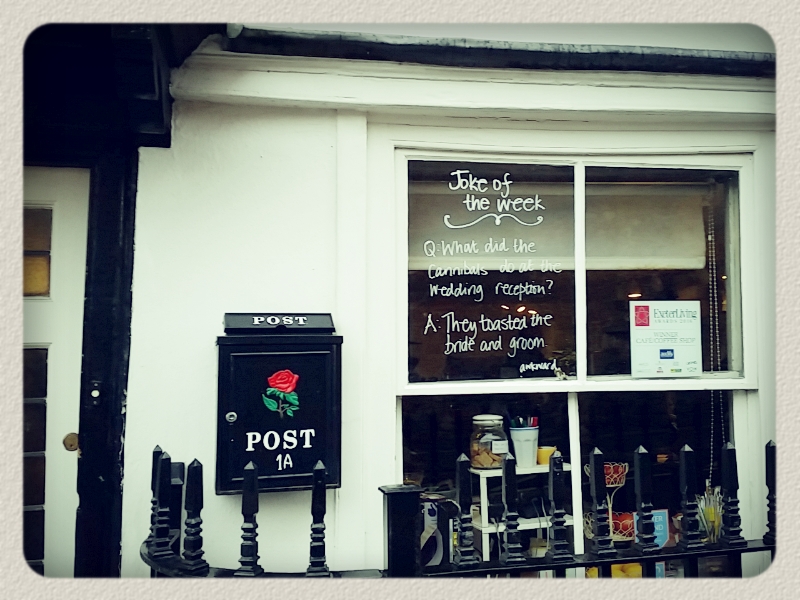 Joke of
the week
Q: What did the
Cannibals do at the
wedding reception?
A: They toasted the
bride and groom
awkward
POST
POST
1A
ExeterLiving
AWARDS
WINNER
CAFE/COFFEE SHOP